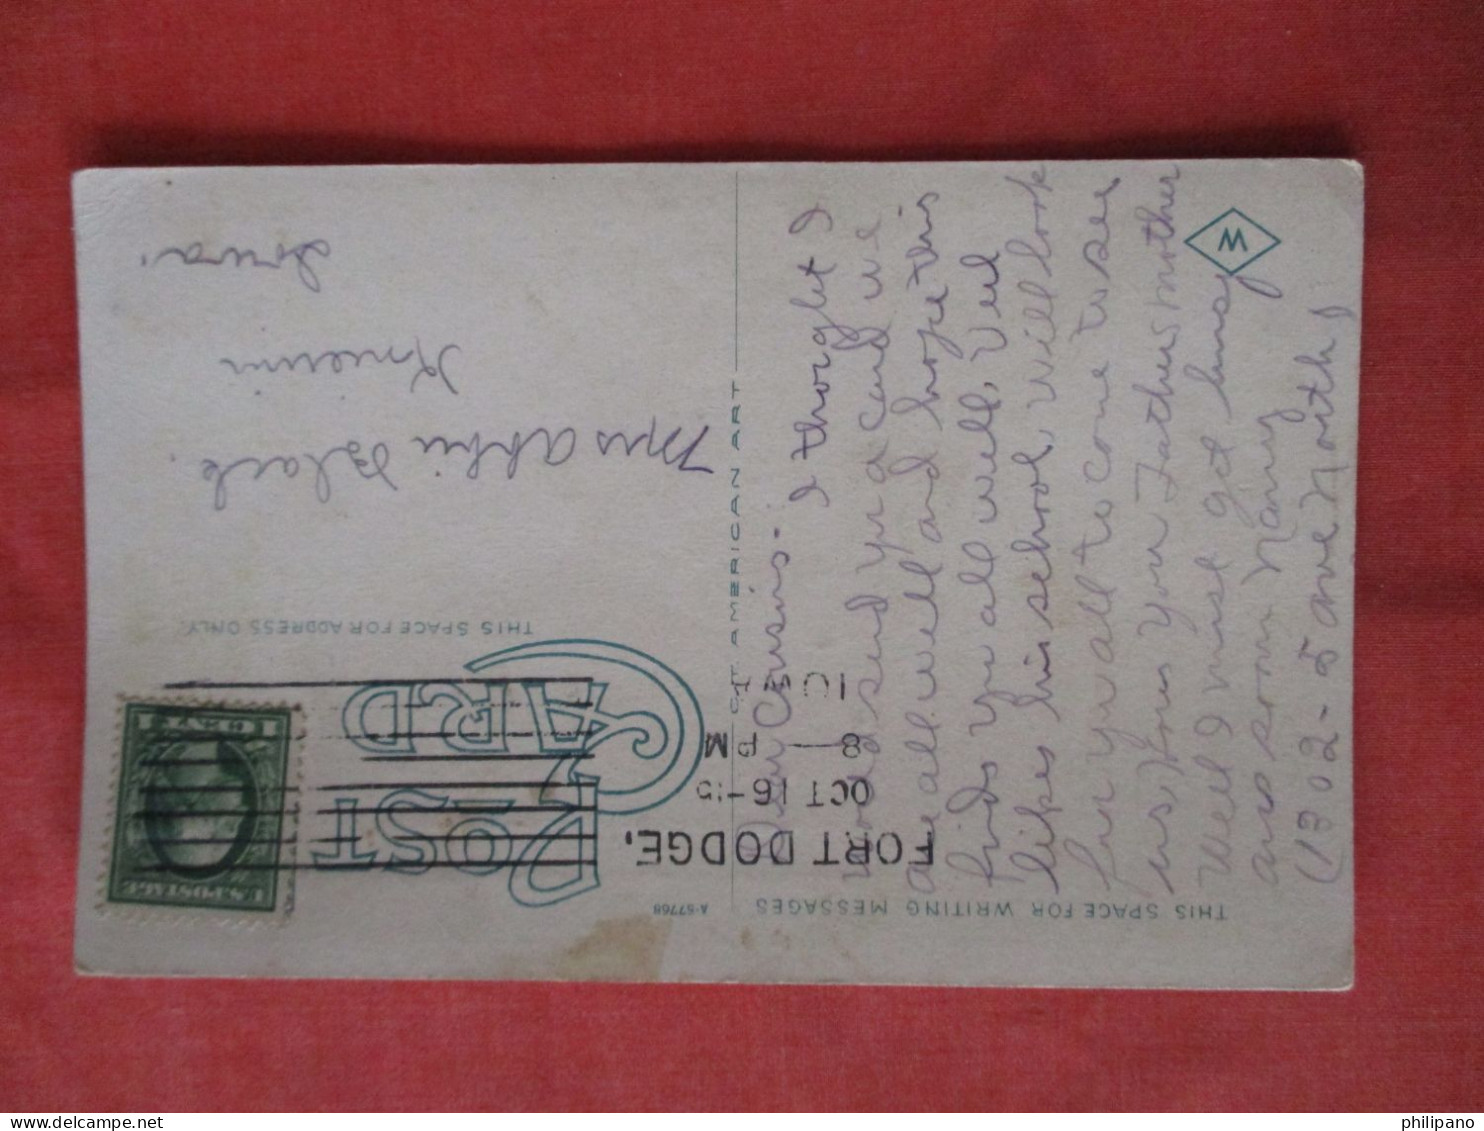 THIS SPACE FOR WRITING MESSAGES
A-57768
POST CARD
THIS SPACE FOR ADDRESS ONLY.
W
AMERICAN ART
FORT DODGE,
OCT 16-15
8 — PM
IOWA
U.S. POSTAGE
1 CENT 1
Dear Cousins - I thought I
would send you a card we
are all well and hope this
finds you all well. Verl
likes his school, will look
for you all to come to see
us, How's your Father & Mother
Well I must get busy
ans soon Nancy
(1302-5 ave North)
Mrs Abbie Black.
Knierim
Iowa.
philipano